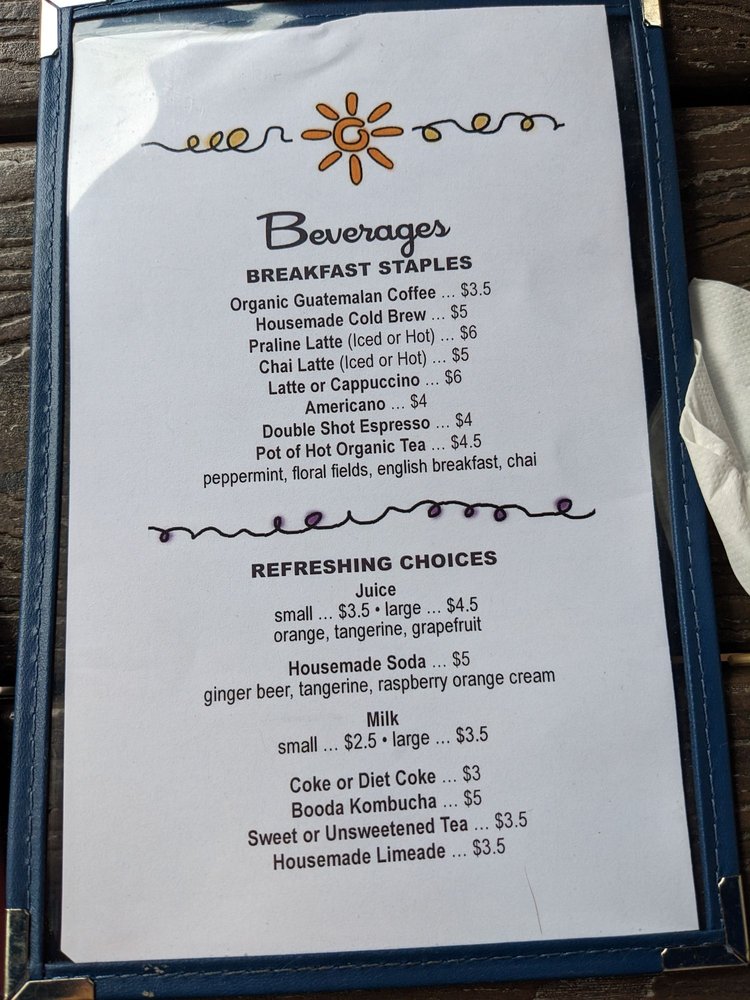 Beverages
BREAKFAST STAPLES
Organic Guatemalan Coffee ... $3.5
Housemade Cold Brew ... $5
Praline Latte (Iced or Hot) ... $6
Chai Latte (Iced or Hot) ... $5
Latte or Cappuccino ... $6
Americano ... $4
Double Shot Espresso ... $4
Pot of Hot Organic Tea ... $4.5
peppermint, floral fields, english breakfast, chai
REFRESHING CHOICES
Juice
small ... $3.5 • large ... $4.5
orange, tangerine, grapefruit
Housemade Soda ... $5
ginger beer, tangerine, raspberry orange cream
Milk
small ... $2.5 • large ... $3.5
Coke or Diet Coke ... $3
Booda Kombucha ... $5
Sweet or Unsweetened Tea ... $3.5
Housemade Limeade ... $3.5